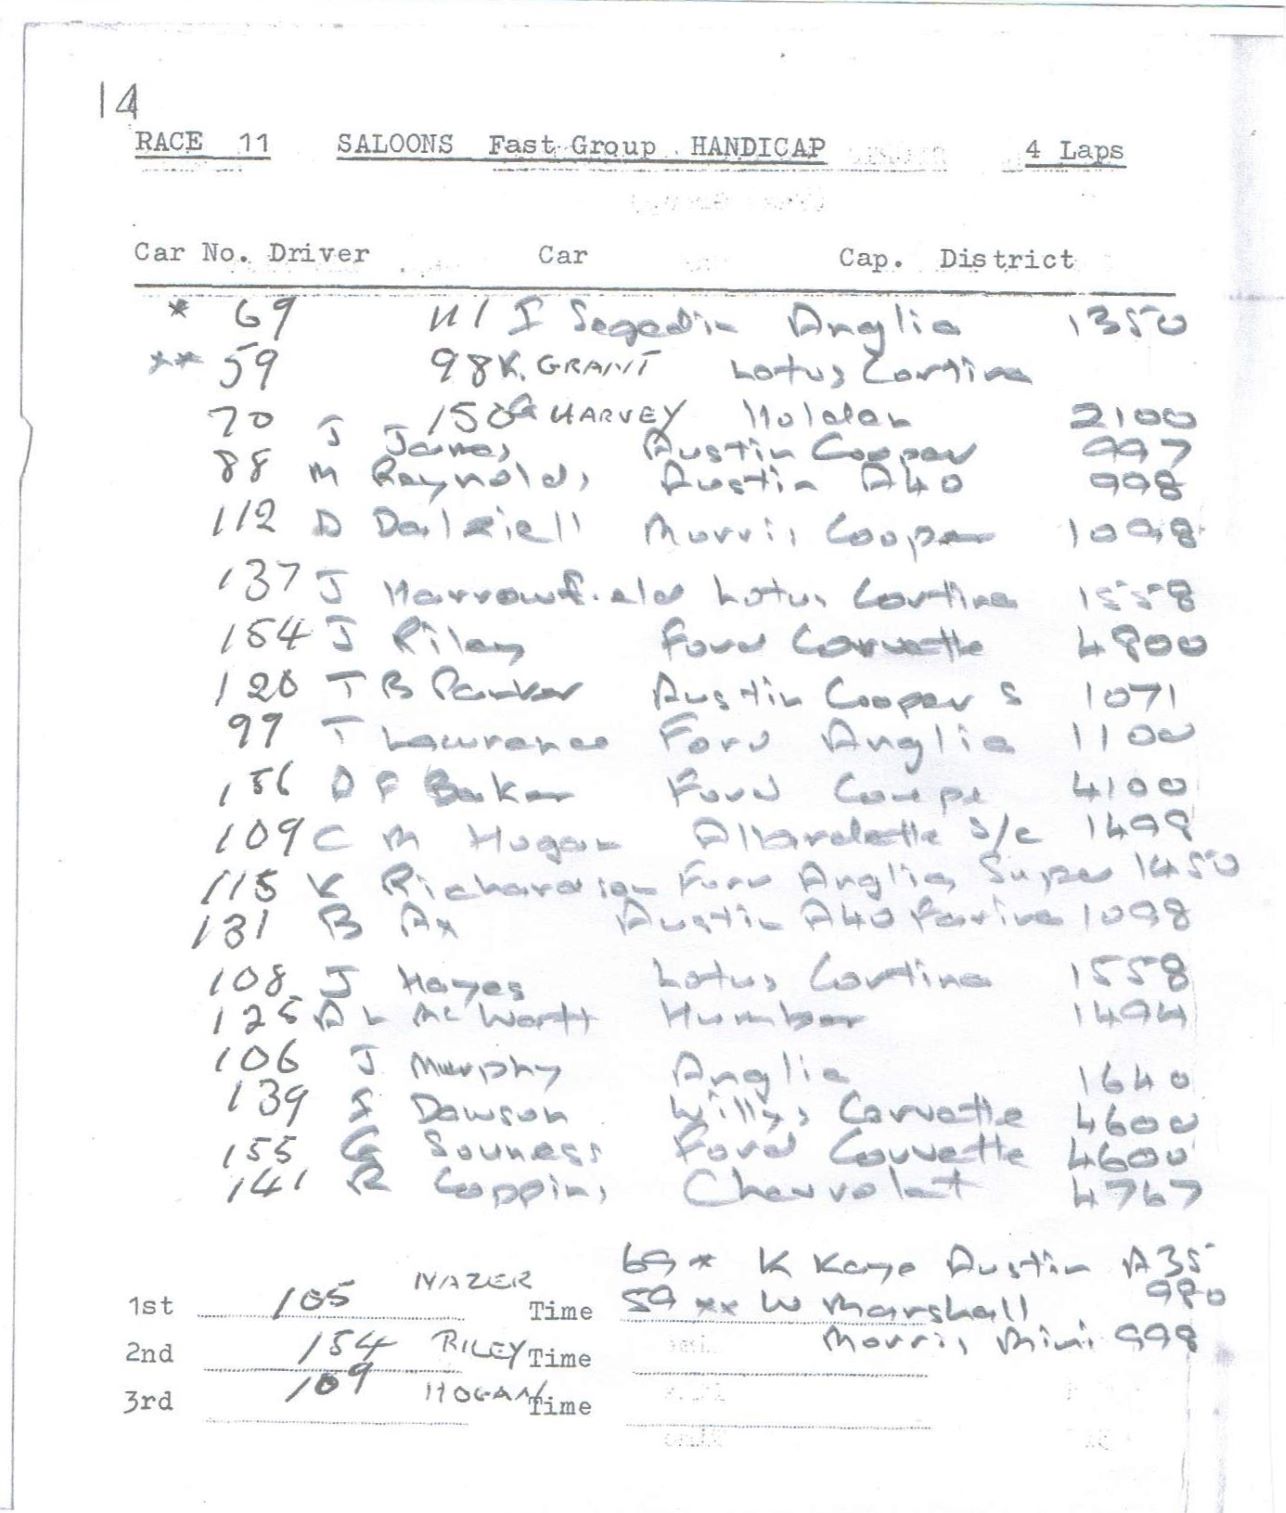 14
RACE 11 SALOONS Fast Group HANDICAP 4 Laps
Car No. Driver Car Cap. District
* 69 111 I Segedin Anglia 1350
** 59 98 K. GRANT Lotus Cortina
70 150 G HARVEY Holden 2100
J James Austin Cooper 997
88 M Reynolds Austin A40 998
112 D Dalziell Morris Cooper 1098
137 J Harrowfield Lotus Cortina 1558
154 J Riley Ford Corvette 4800
120 T B Parker Austin Cooper S 1071
99 T Lawrence Ford Anglia 1100
156 D F Baker Ford Coupe 4100
109 C M Hogan Allardette S/C 1498
115 K Richardson Ford Anglia Super 1450
131 B Ax Austin A40 Farina 1098
108 J Hayes Lotus Cortina 1558
125 A L McWortt Humber 1494
106 J Murphy Anglia 1640
139 S Dawson Willys Corvette 4600
155 G Souness Ford Corvette 4600
141 R Coppins Chevrolet 4767
69 * K Kaye Austin A35 980
1st 105 NAZER Time 59 ** W Marshall
Morris Mini 998
2nd 154 RILEY Time
3rd 109 HOGAN Time